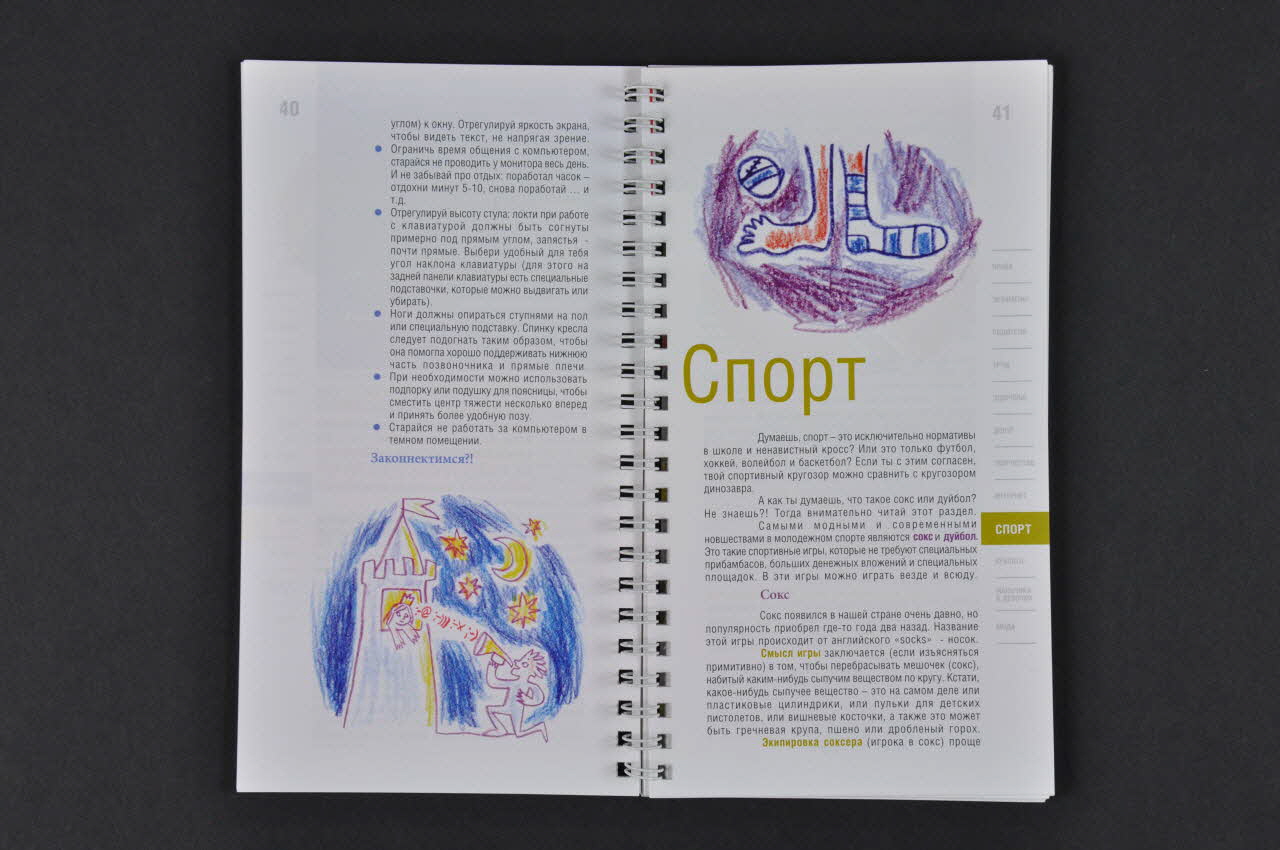 40
углом) к окну. Отрегулируй яркость экрана,
чтобы видеть текст, не напрягая зрение.
Ограничь время общения с компьютером,
старайся не проводить у монитора весь день.
И не забывай про отдых: поработал часок –
отдохни минут 5-10, снова поработай ... и
т.д.
Отрегулируй высоту стула: локти при работе
с клавиатурой должны быть согнуты
примерно под прямым углом, запястья -
почти прямые. Выбери удобный для тебя
угол наклона клавиатуры (для этого на
задней панели клавиатуры есть специальные
подставочки, которые можно выдвигать или
убирать).
Ноги должны опираться ступнями на пол
или специальную подставку. Спинку кресла
следует подогнать таким образом, чтобы
она помогла хорошо поддерживать нижнюю
часть позвоночника и прямые плечи.
При необходимости можно использовать
подпорку или подушку для поясницы, чтобы
сместить центр тяжести несколько вперед
и принять более удобную позу.
Старайся не работать за компьютером в
темном помещении.
Законнектимся?!
41
Спорт
Думаешь, спорт – это исключительно нормативы
в школе и ненавистный кросс? Или это только футбол,
хоккей, волейбол и баскетбол? Если ты с этим согласен,
твой спортивный кругозор можно сравнить с кругозором
динозавра.
А как ты думаешь, что такое сокс или дуйбол?
Не знаешь?! Тогда внимательно читай этот раздел.
Самыми модными и современными
новшествами в молодежном спорте являются сокс и дуйбол.
Это такие спортивные игры, которые не требуют специальных
прибамбасов, больших денежных вложений и специальных
площадок. В эти игры можно играть везде и всюду.
Сокс
Сокс появился в нашей стране очень давно, но
популярность приобрел где-то года два назад. Название
этой игры происходит от английского «socks» - носок.
Смысл игры заключается (если изъясняться
примитивно) в том, чтобы перебрасывать мешочек (сокс),
набитый каким-нибудь сыпучим веществом по кругу. Кстати,
какое-нибудь сыпучее вещество – это на самом деле или
пластиковые цилиндрики, или пульки для детских
пистолетов, или вишневые косточки, а также это может
быть гречневая крупа, пшено или дробленый горох.
Экипировка соксера (игрока в сокс) проще
СПОРТ